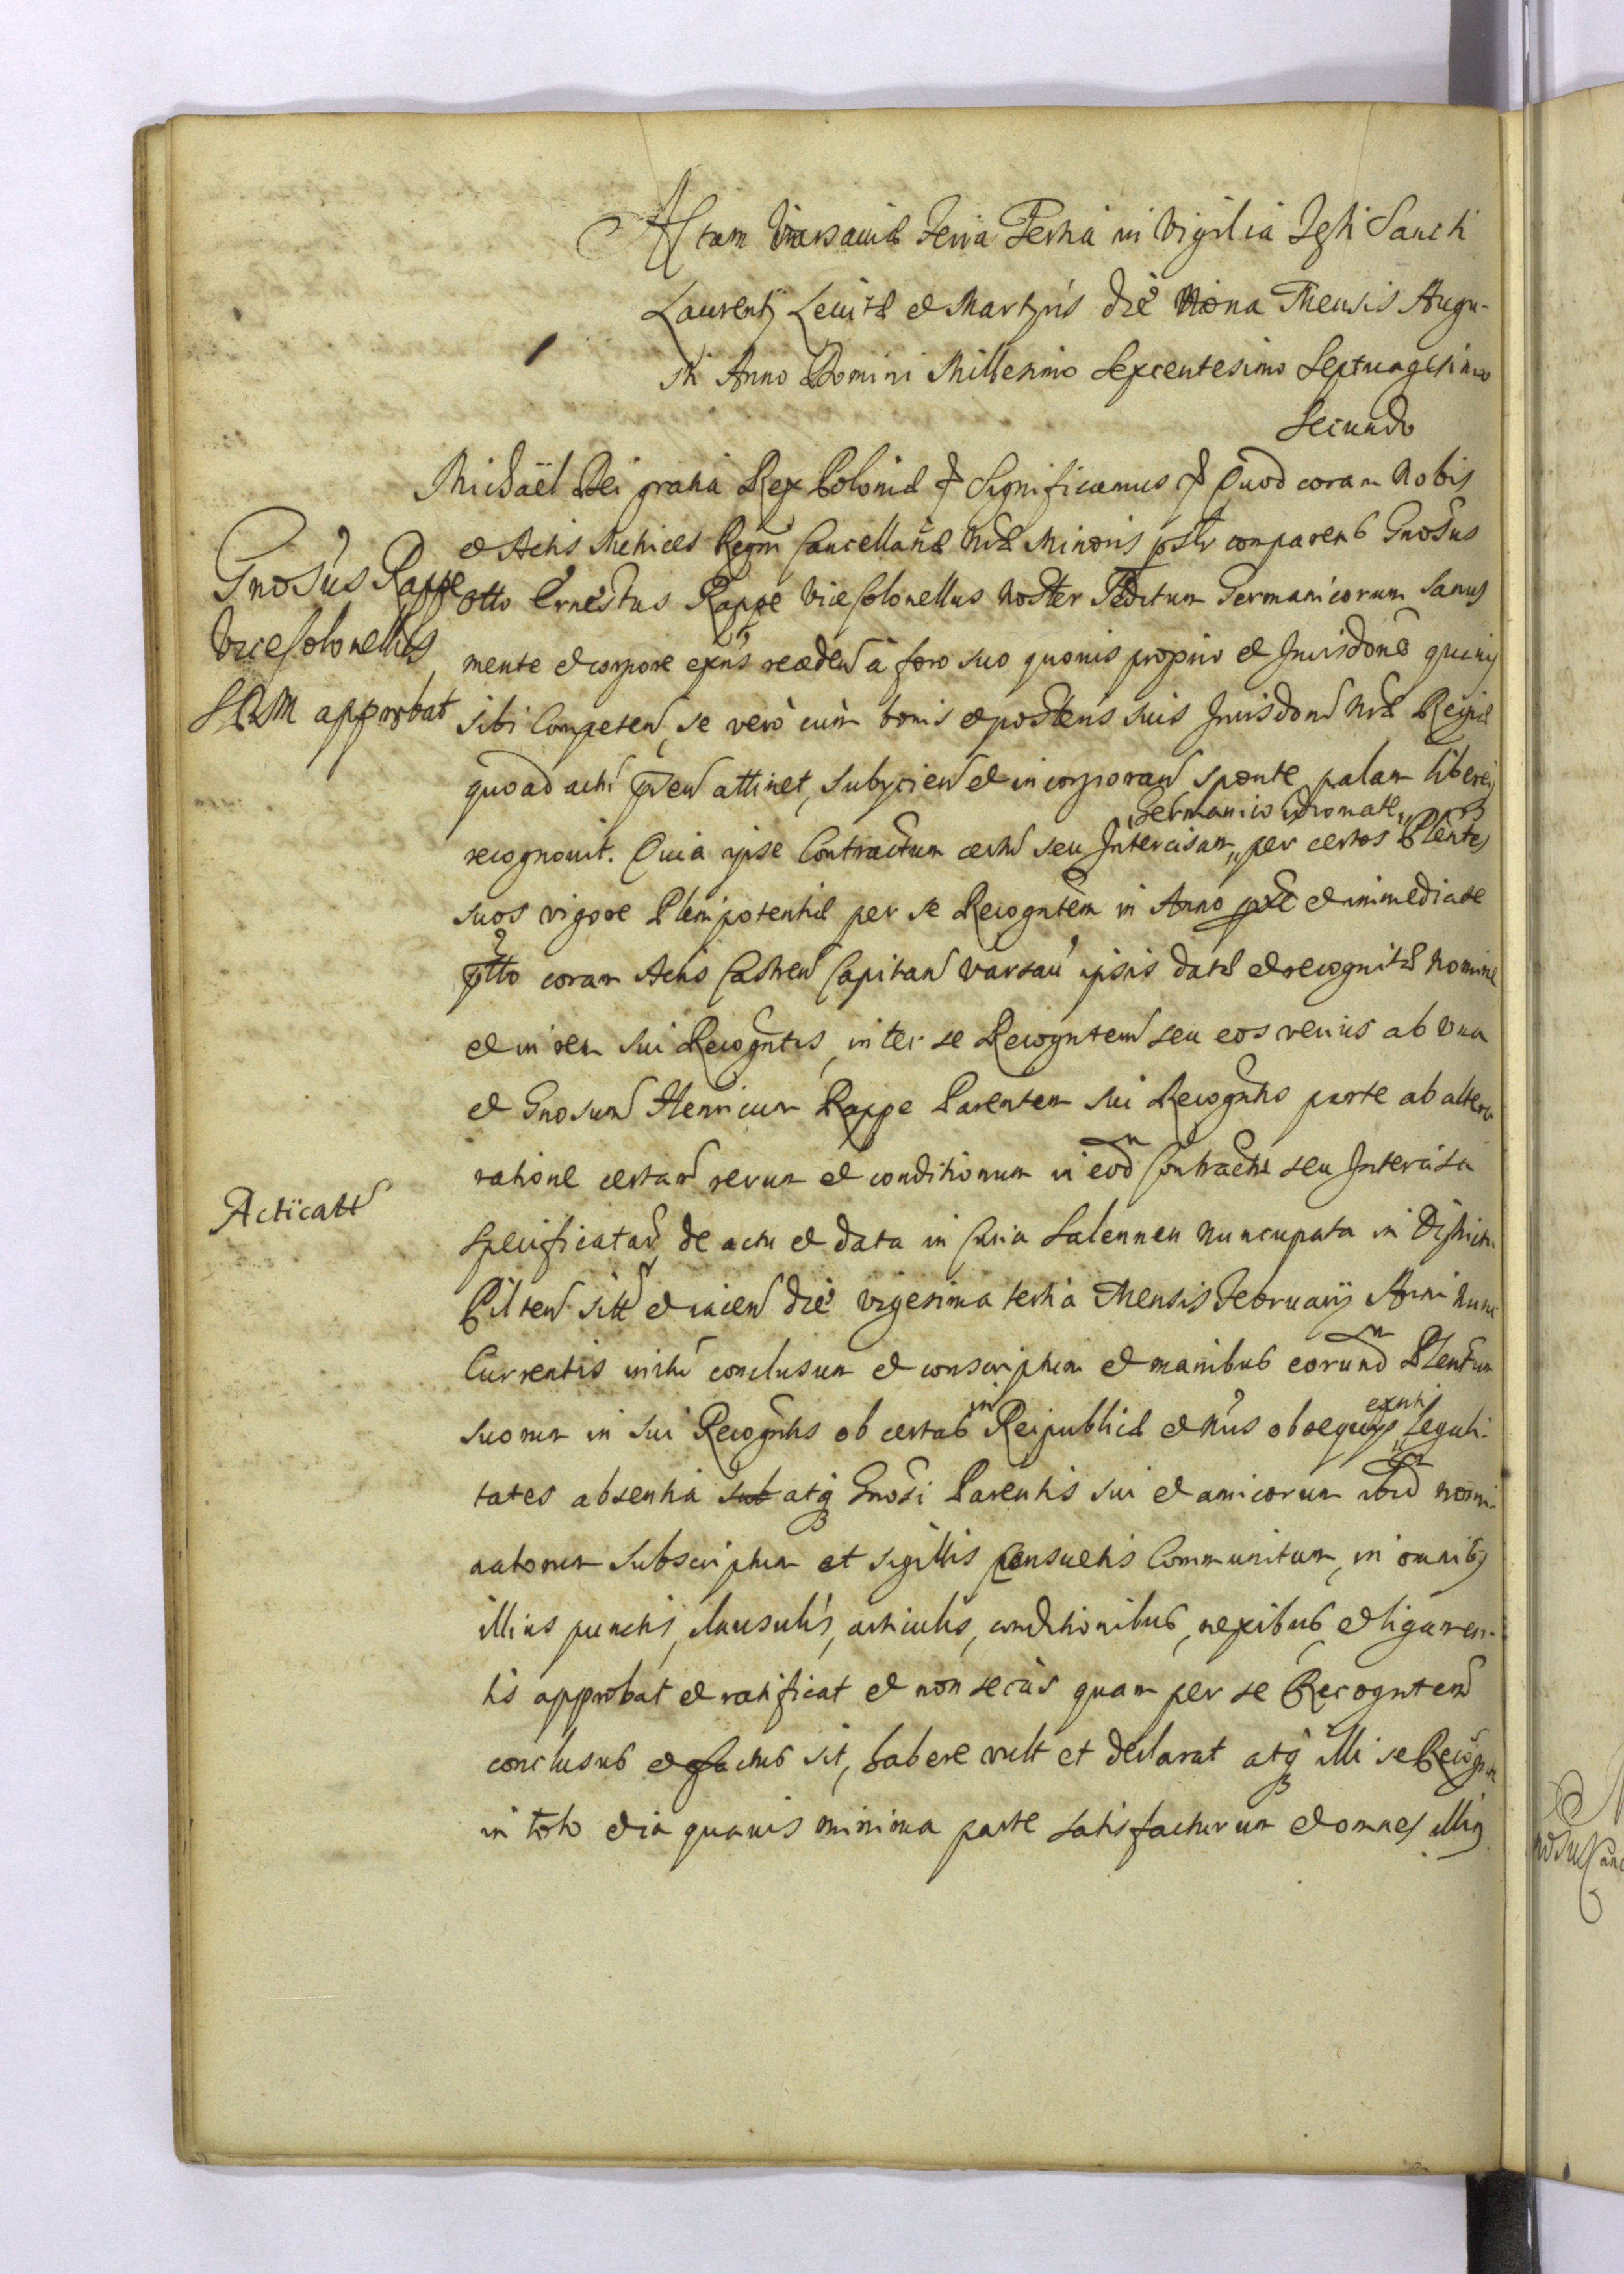 Actum Varsaviæ Feria Tertia in Vigilia Festi Sancti
Laurentij Levitæ et Martyris die Nona Mensis Augu-
sti Anno Domini Millesimo Sexcentesimo Septuagesimo
Secundo
Michaël Dei gratia Rex Poloniæ & Significamus & Quod coram Nobis
et Actis Metrices Regni Cancellariæ Nræ Minoris psltr comparens Gnosus
Gnosus Rappe
ViceColonellus
approbat
Otto Ernestus Rappe ViceColonellus Noster Peditum Germanicorum Sanus
mente et corpore exns recedend à foro suo quovis proprio et Jurisdone quavis
sibi Competen, se verò cum bonis et posteris suis Jurisdoni Nræ Regiæ
quoad acti pñtn attinet, subycien et incorporan sponte palam libereq
recognovit. Quia ipse Contractum certũ seu Intercisam „per certos Plentes
„Germanico idiomate„
suos vigore Plenipotentiæ per se Recogntem in Anno pxe et immediate
ptto coram Actis Castren Capitan Varsav ipsis datæ et recognitæ Nomine
et in rem sui Recogntis, inter se Recogntem seu eos verius ab una
et Gnosum Henricum Rappe Parentem sui Recogntis parte ab altera
ratione certar rerum et conditionum in eod Contractu seu Intercisa
Acticatt
specificatar, de actu et data in Curia Salennen nuncupata in Districtu
Pilten sitt et iacen die vigesima tertia Mensis February Anni nunc
Currentis initũ conclusum et conscriptum et manibus eorund Plentium
suorum in sui Recogntis ob certas in Reipublicæ et Nris obsequijs „legali-
exnti
tates absentia sub atq Gnosi Parentis sui et amicorum ibid nomi-
natorum subscriptum et sigillis consuetis Communitum, in omnibq
illius punctis, clausulis, articulis, conditionibus, nexibus, et ligamen-
tis approbat et ratificat et non secus quam per se Recogntem
conclusus et factus sit, habere vult et declarat atq illi se Recogn
in toto et in quavis minima parte satisfacturum et omnes illiq